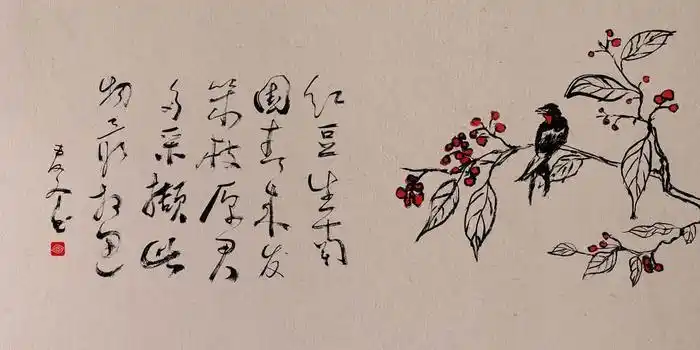 红豆生南
国春来发
幾枝愿君
多采撷此
物最相思